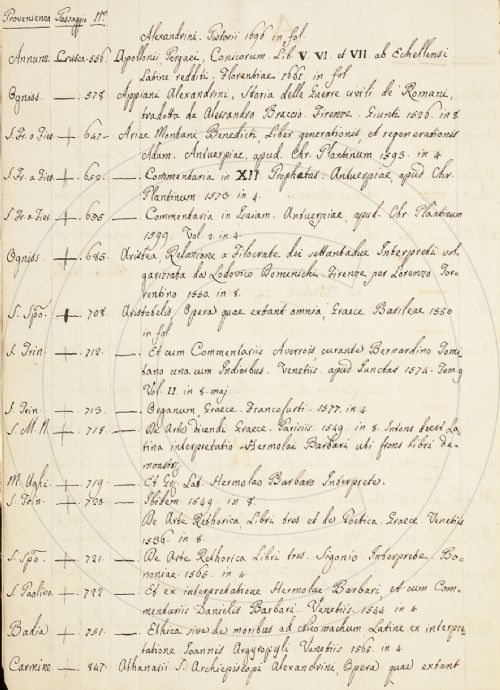 Provenienza Passaggio N.o
Alexandrini. Pistorii 1696 in fol.
Annunz. Crusca - 556. Apollonii Pergaei, Conicorum. Lib. V. VI. et VII. ab Echellensi
Latine redditi. Florentiae 1661. in fol.
Ogniss. — 578 Appiani Alexandrini, Storia delle Guerre civili de' Romani,
tradotta da Alessandro Braccio. Firenze. Giunti 1526. in 8
S. Fr. a Fies. + 647 - Ariae Montani Benedicti, Liber generationis et regenerationis
Adam. Antuerpiae, apud. Chr. Plantinum 1593. in 4
S. Fr. a Fies. + 652. — Commentaria in XII Prophetas. Antuerpiae, apud Chr.
Plantinum 1573 in 4.
S. Fr. a Fies. + 655 — Commentaria in Isaiam. Antuerpiae, apud. Chr. Plantinum
1599. Vol 2. in 4.
Ogniss. — 685. Aristea, Relazione a Filocrate dei settantadue Interpreti vol-
garizzata da Lodovico Domenichi. Firenze per Lorenzo Tor-
rentino 1550. in 8.
S. Spo. + 708 Aristotelis, Opera quae extant omnia, Graece Basileae 1550
in fol.
S. Trin. + 712. —. Et cum Commentariis Averrois, curante Bernardino Tomi-
tano una cum Indicibus. Venetiis. apud Junctas 1574. Tom. 9
Vol. 11. in 8. maj.
S. Trin. — 713. —. Organum, Graece. Francofurti. 1577. in 4
S. M. N. + 718. —. De Arte dicendi Graece. Parisiis. 1549. in 8. La-
tina interpretatio Hermolae Barbari uti frons libri de-
monstrat
M. Ughi. + 719 — Et Lat. Hermolao Barbaro Interprete.
S. Trin. — 720 — Ibidem 1549. in 8.
De Arte Rethorica, Libri tres et de Poetica. Graece. Venetiis
1536. in 8.
S. Spo. + 721. — De Arte Rethorica Libri tres. Sigonio Interprete. Bo-
noniae. 1565. in 4
S. Paolino + 722 — Et ex interpretatione Hermolae Barbari, et cum Com-
mentariis Danielis Barbari. Venetiis. 1544 in 4
Badia + 751. —. Ethica sive de moribus ad Nicomachum. Latine ex interpre-
tatione Joannis Argyropyli. Venetiis 1565. in 4.
Carmine + 847. Athanasii S. Archiepiscopi Alexandrini, Opera quae extant